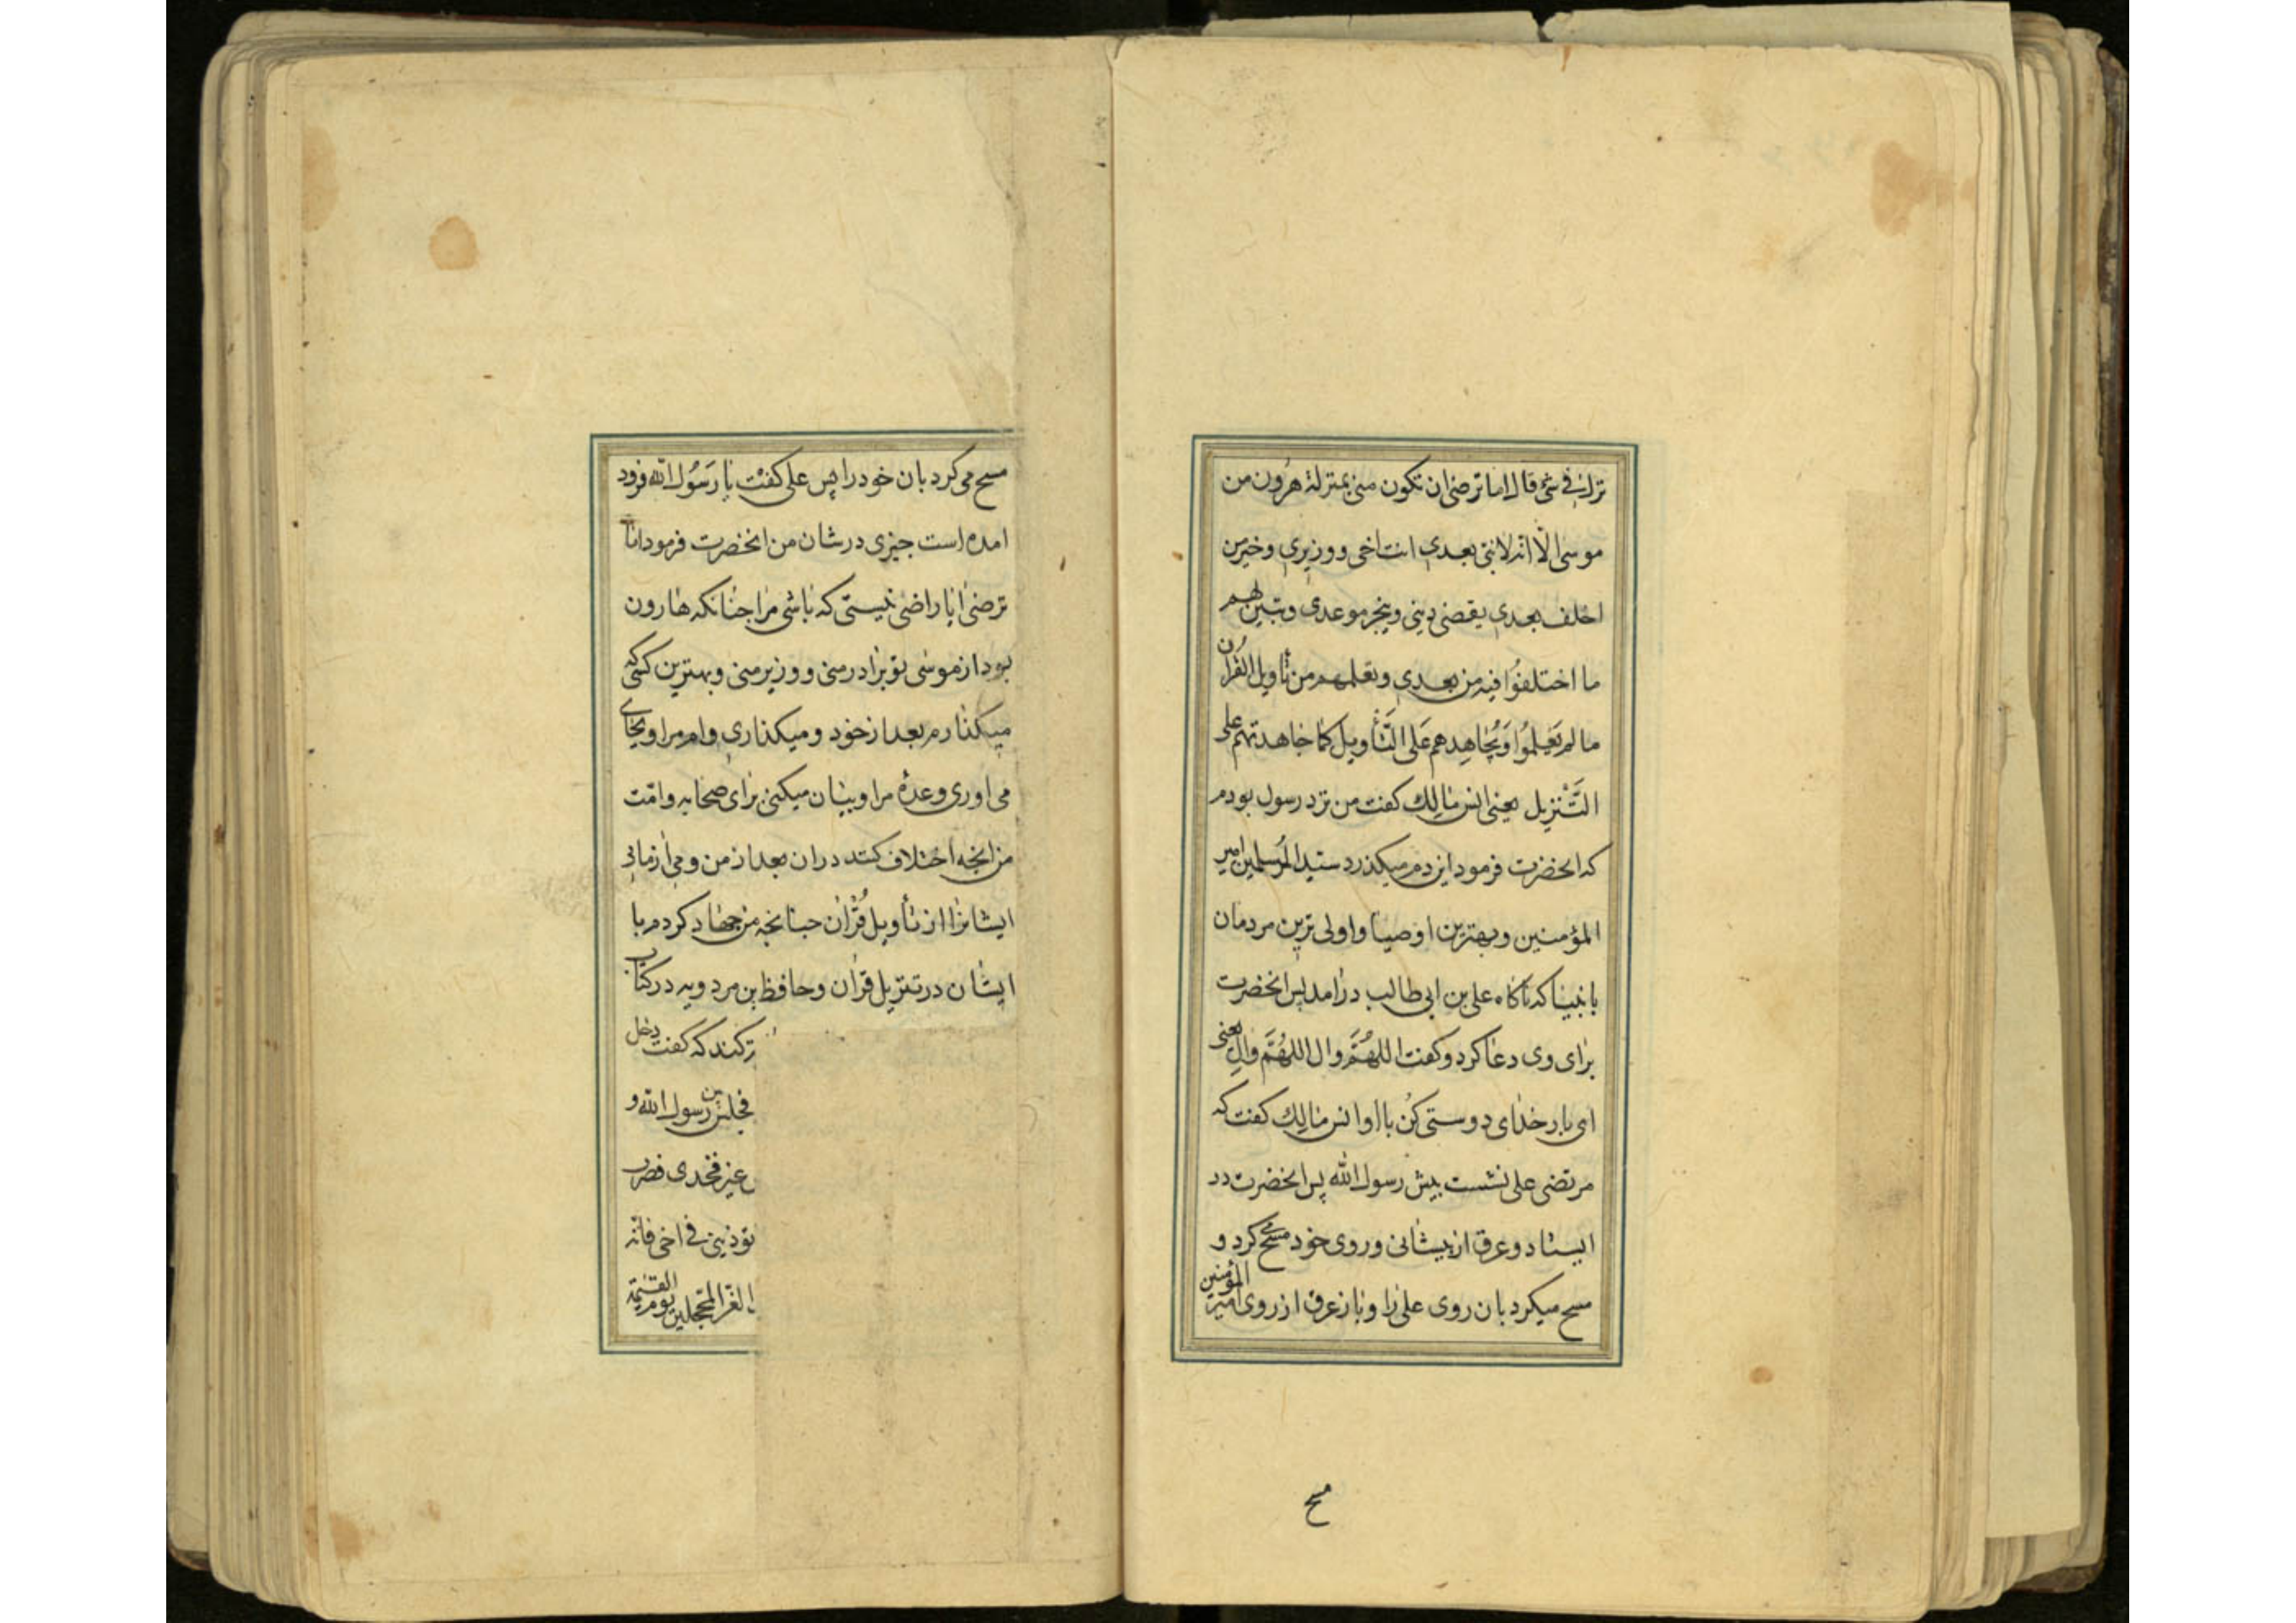 نزل فی شیٔ قال اما ترضی ان تکون منی بمنزلة هرون من
موسی الا انه لا نبی بعدی انت اخی و وزیری و خیر من
اخلف بعدی یقضی دینی و ینجز موعدی و تبین لهم
ما اختلفوا فیه من بعدی و تعلمهم من تأویل القرآن
ما لم یَعلموُا وَ یُجاهِدهم عَلی التَّأویل کما جاهدتهم علی
التَّنْزِیل یعنی انس مالِك کفت من نزد رسول بودم
که انحضرت فرمود این دم میکذرد سید المُرسلین امیر
المؤمنین و بهترین اوصیا و اولی ترین مردمان
با نبینا که ناکاه علی بن ابی طالب درامد پس انحضرت
برای وی دعا کرد و کفت اللهُمَّ وال اللهُمَّ والِ یعنی
ای بار خدای دوستی کنُ با او انس مالِك کفت که
مرتضی علی نشست پیش رسول الله پس انحضرت در
ایستاد و عرق از پیشانی و روی خود مسح می کرد و
مسح میکرد بان روی علی را و باز عرق از روی امیر المؤمنین
مسح
مسح می کرد بان خود را پس علی کفت یا رَسُول الله فرود
امده است چیزی در شان من انحضرت فرمود اما
ترضی ایا راضی نیستی که باشی مرا چنانکه هارون
بود از موسی تو برادر منی و وزیر منی و بهترین کسی که
میکذارم بعد از خود و میکذاری وام مرا و بجای
می اوری وعدهٔ مرا و بیان میکنی برای صحابه و امت
من انچه اختلاف کنند در ان بعد از من و می ازمانی
ایشانرا از تأویل قُرْان چنانچه من جهاد کردم با
ایشان در تنزیل قران و حافظ بن مردویه در کتاب
کند که کفت دخل
فجلس بین رسول الله و
غیر فخدی فضرب
تؤذینی فی اخی فانه
الغر المحجلین یوم القیٰمة